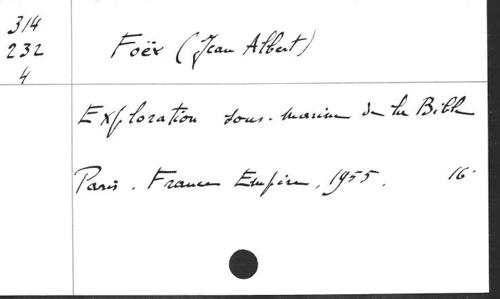 314
232
4
Foëx (Jean Albert)
Exploration sous-marine de la Bible
Paris. France Empire, 1955. 16°